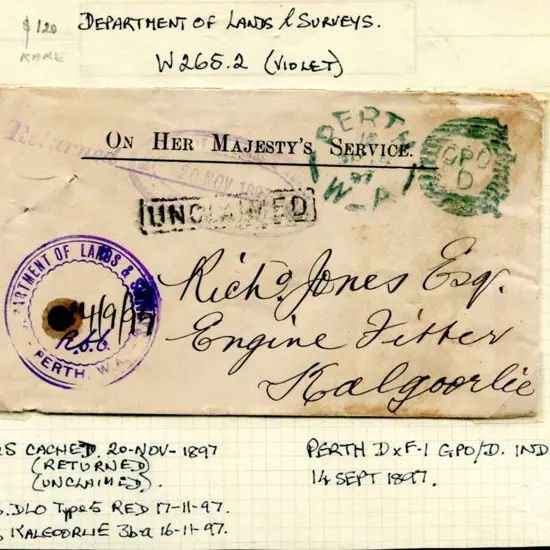 $120
RARE
DEPARTMENT OF LANDS & SURVEYS.
W265.2 (VIOLET)
Returned
ON HER MAJESTY'S SERVICE.
20 NOV 1897
PERTH
97
W-A
GPO
D
UNCLAIMED
DEPARTMENT OF LANDS & SURVEYS
14/9/97
PERTH, W.A.
Richd. Jones Esq.
Engine Fitter
Kalgoorlie
CACHED 20-NOV-1897
(RETURNED)
(UNCLAIMED).
DLO Type 5 RED 17-11-97.
KALGOORLIE 3ba 16-11-97.
PERTH DxF-1 GPO/D. IND
14 SEPT 1897.